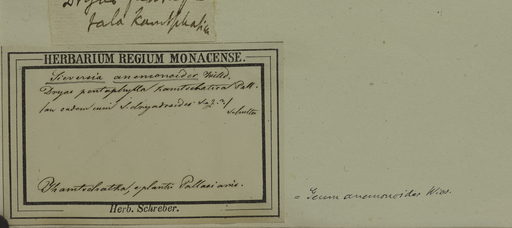 Dryas
tala Kamtschatica
HERBARIUM REGIUM MONACENSE.
Sieversia anemonoides Willd.
Dryas pentaphylla kamtschatica Pall.
an eadem cum S. dryadoides
Kamtschatka, e plantis Pallasianis.
Herb. Schreber.
= Geum anemonoides Willd.